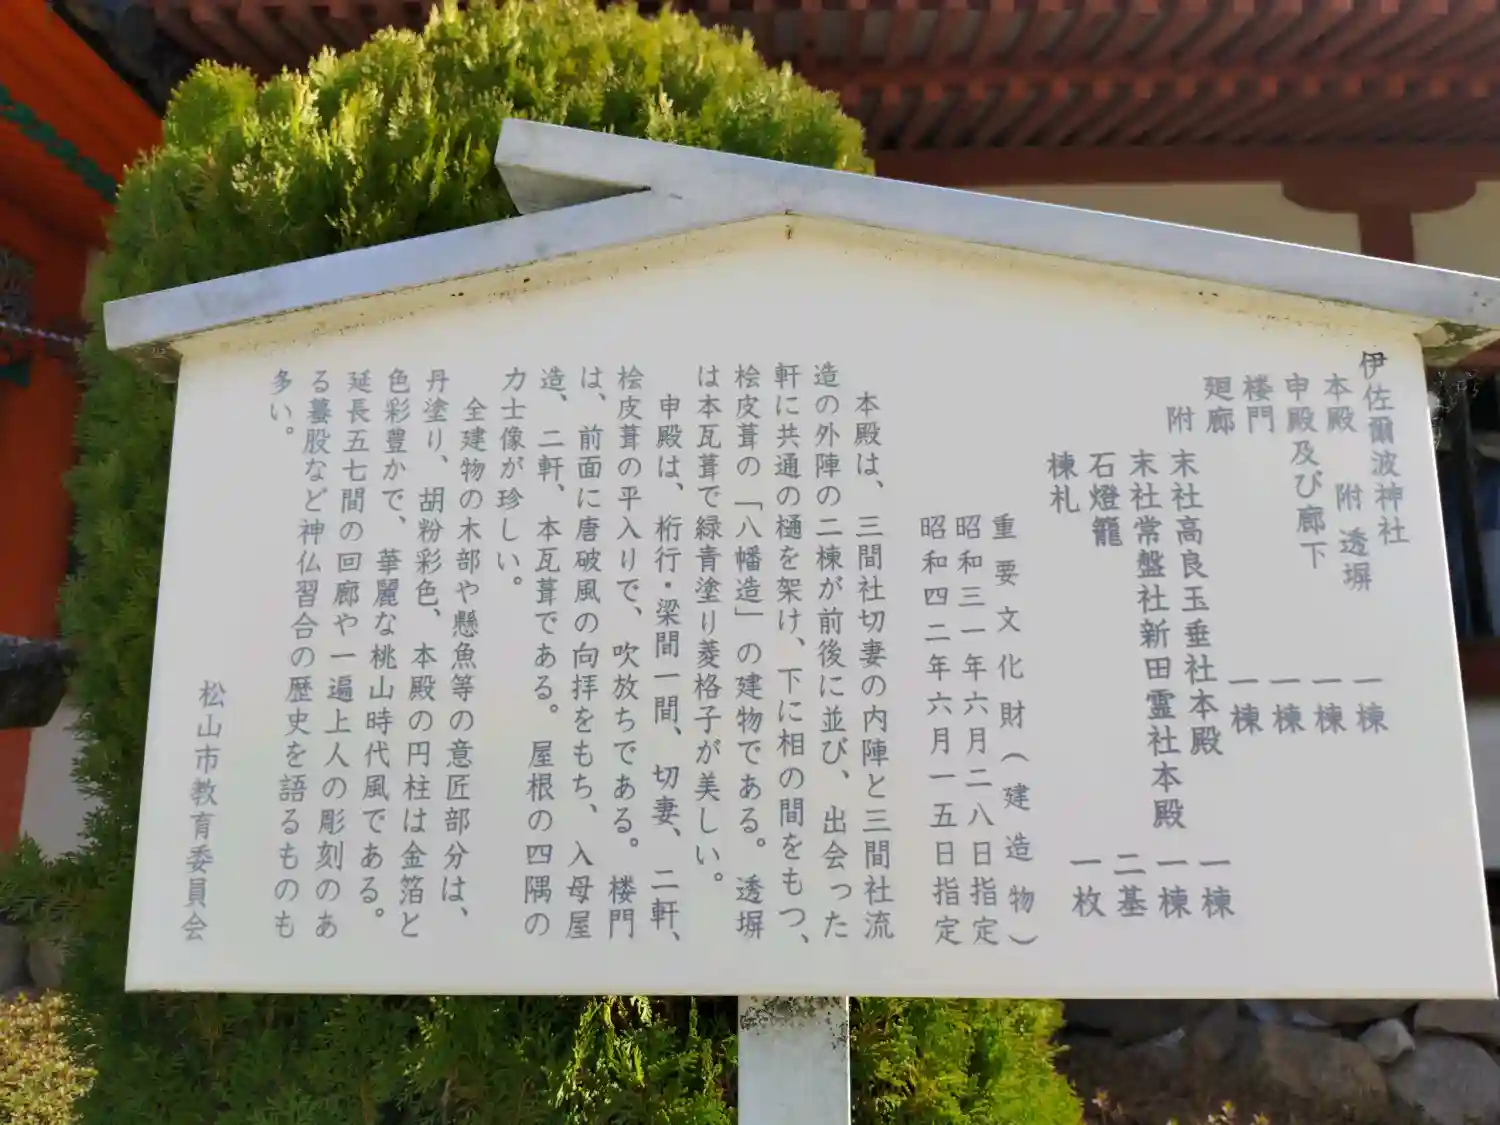 伊佐爾波神社
本殿 附 透塀 一棟
申殿及び廊下 一棟
楼門 一棟
廻廊 一棟
附 末社高良玉垂社本殿 一棟
末社常盤社新田霊社本殿 一棟
石燈籠 二基
棟札 一枚
重要文化財(建造物)
昭和三一年六月二八日指定
昭和四二年六月一五日指定
本殿は、三間社切妻の内陣と三間社流
造の外陣の二棟が前後に並び、出会った
軒に共通の樋を架け、下に相の間をもつ、
桧皮葺の「八幡造」の建物である。透塀
は本瓦葺で緑青塗り菱格子が美しい。
申殿は、桁行・梁間一間、切妻、二軒、
桧皮葺の平入りで、吹放ちである。楼門
は、前面に唐破風の向拝をもち、入母屋
造、二軒、本瓦葺である。屋根の四隅の
力士像が珍しい。
全建物の木部や懸魚等の意匠部分は、
丹塗り、胡粉彩色、本殿の円柱は金箔と
色彩豊かで、華麗な桃山時代風である。
延長五七間の回廊や一遍上人の彫刻のあ
る蟇股など神仏習合の歴史を語るものも
多い。
松山市教育委員会